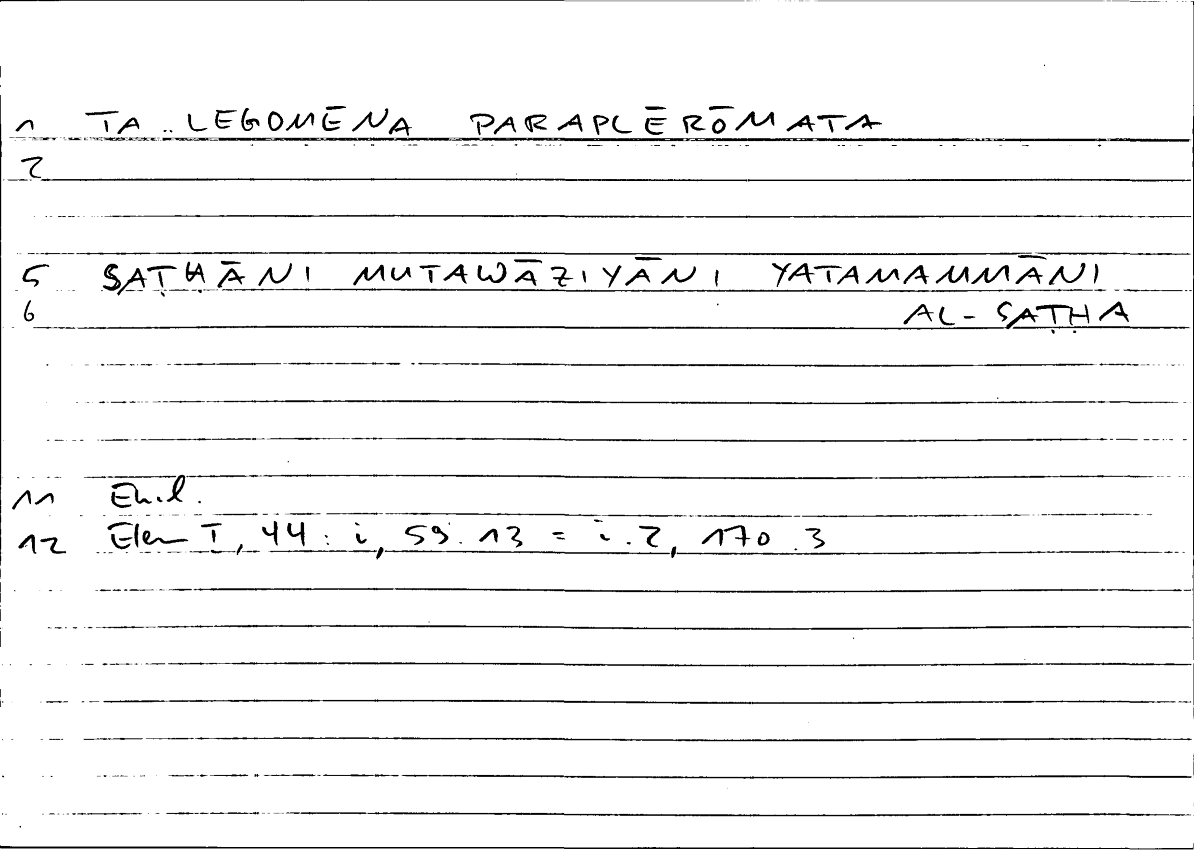 1 TA LEGOMĒNA PARAPLĒRŌMATA
2
5 SAṬḤĀNI MUTAWĀZIYĀNI YATAMAMMĀNI
6 AL-SAṬḤA
11 Eucl.
12 Elem I, 44 : i, 59.13 = i.2, 170.3